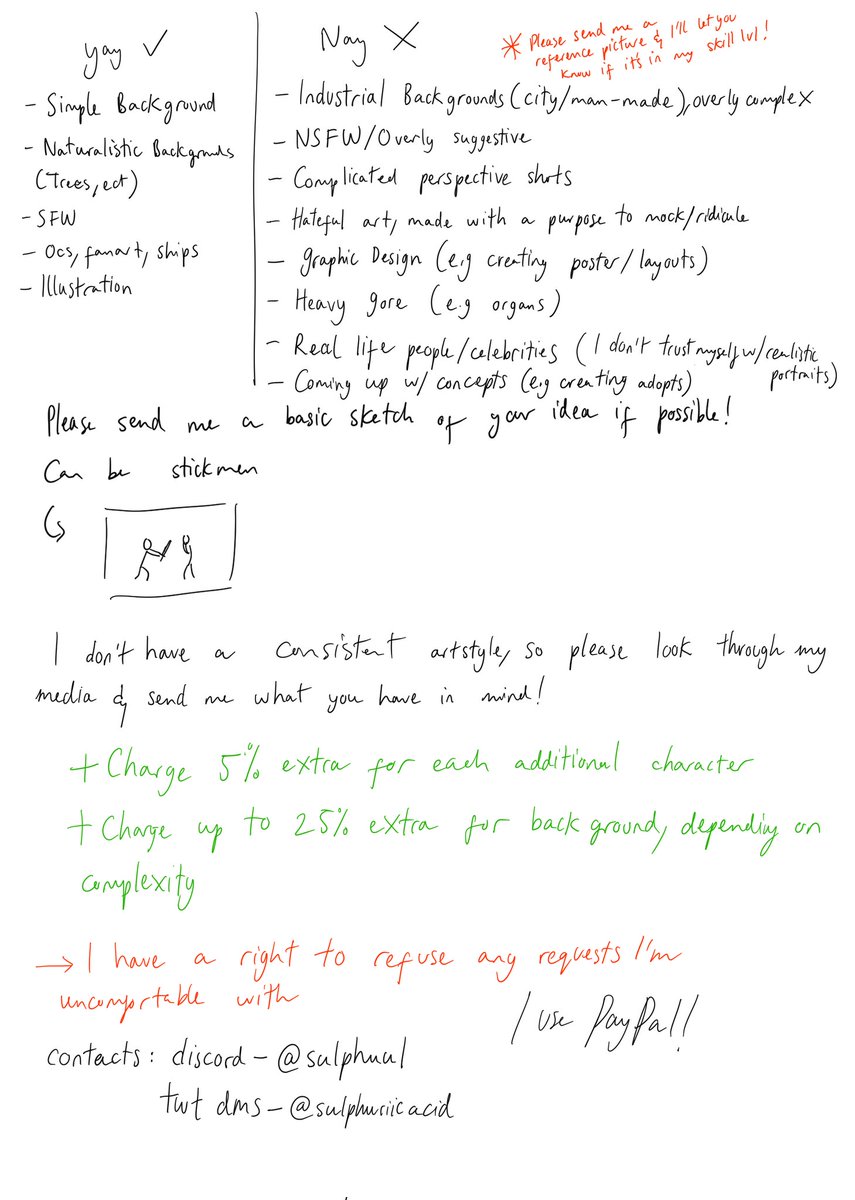 yay ✓
- Simple Background
- Naturalistic Backgrounds
(Trees, ect)
- SFW
- Ocs, fanart, ships
- Illustration
Nay X
* Please send me a
reference picture & I'll let you
know if it's in my skill lvl!
- Industrial Backgrounds (city/man-made), overly complex
- NSFW/Overly suggestive
- Complicated perspective shots
- Hateful art, made with a purpose to mock/ridicule
- Graphic Design (e.g creating poster/layouts)
- Heavy gore (e.g organs)
- Real life people/celebrities (I don't trust myself w/realistic
portraits)
- Coming up w/ concepts (e.g creating adopts)
Please send me a basic sketch of your idea if possible!
Can be stickmen
I don't have a consistent artstyle, so please look through my
media & send me what you have in mind!
+ Charge 5% extra for each additional character
+ Charge up to 25% extra for background, depending on
complexity
→ I have a right to refuse any requests I'm
uncomfortable with
I use PayPal!
contacts: discord - @sulphuul
twt dms - @sulphuriicacid